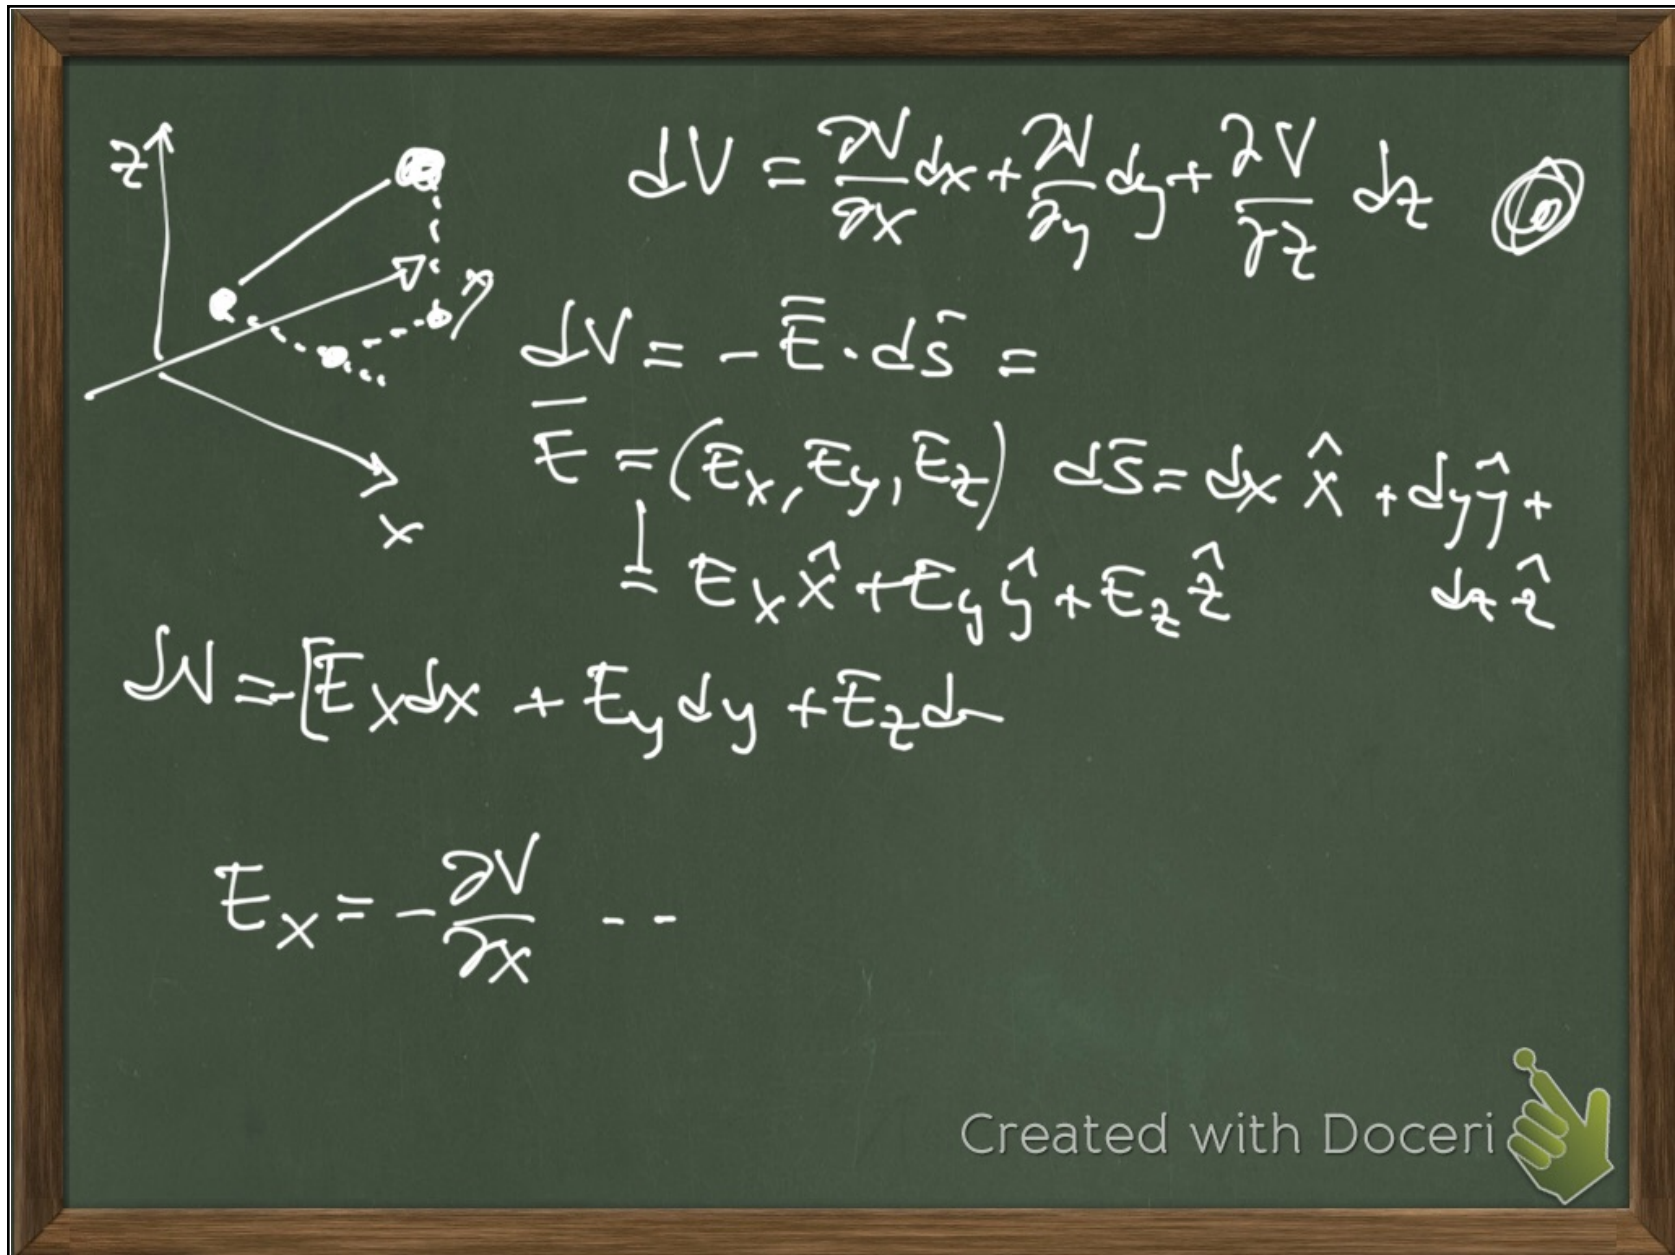 z
y
x
dV = ∂V/∂x dx + ∂V/∂y dy + ∂V/∂z dz
dV = - Ē · ds̄ =
Ē = (Ex, Ey, Ez) ds̄ = dx x̂ + dy ŷ +
dz ẑ
= Ex x̂ + Ey ŷ + Ez ẑ
dV = -[Ex dx + Ey dy + Ez dz
Ex = - ∂V/∂x - -
Created with Doceri